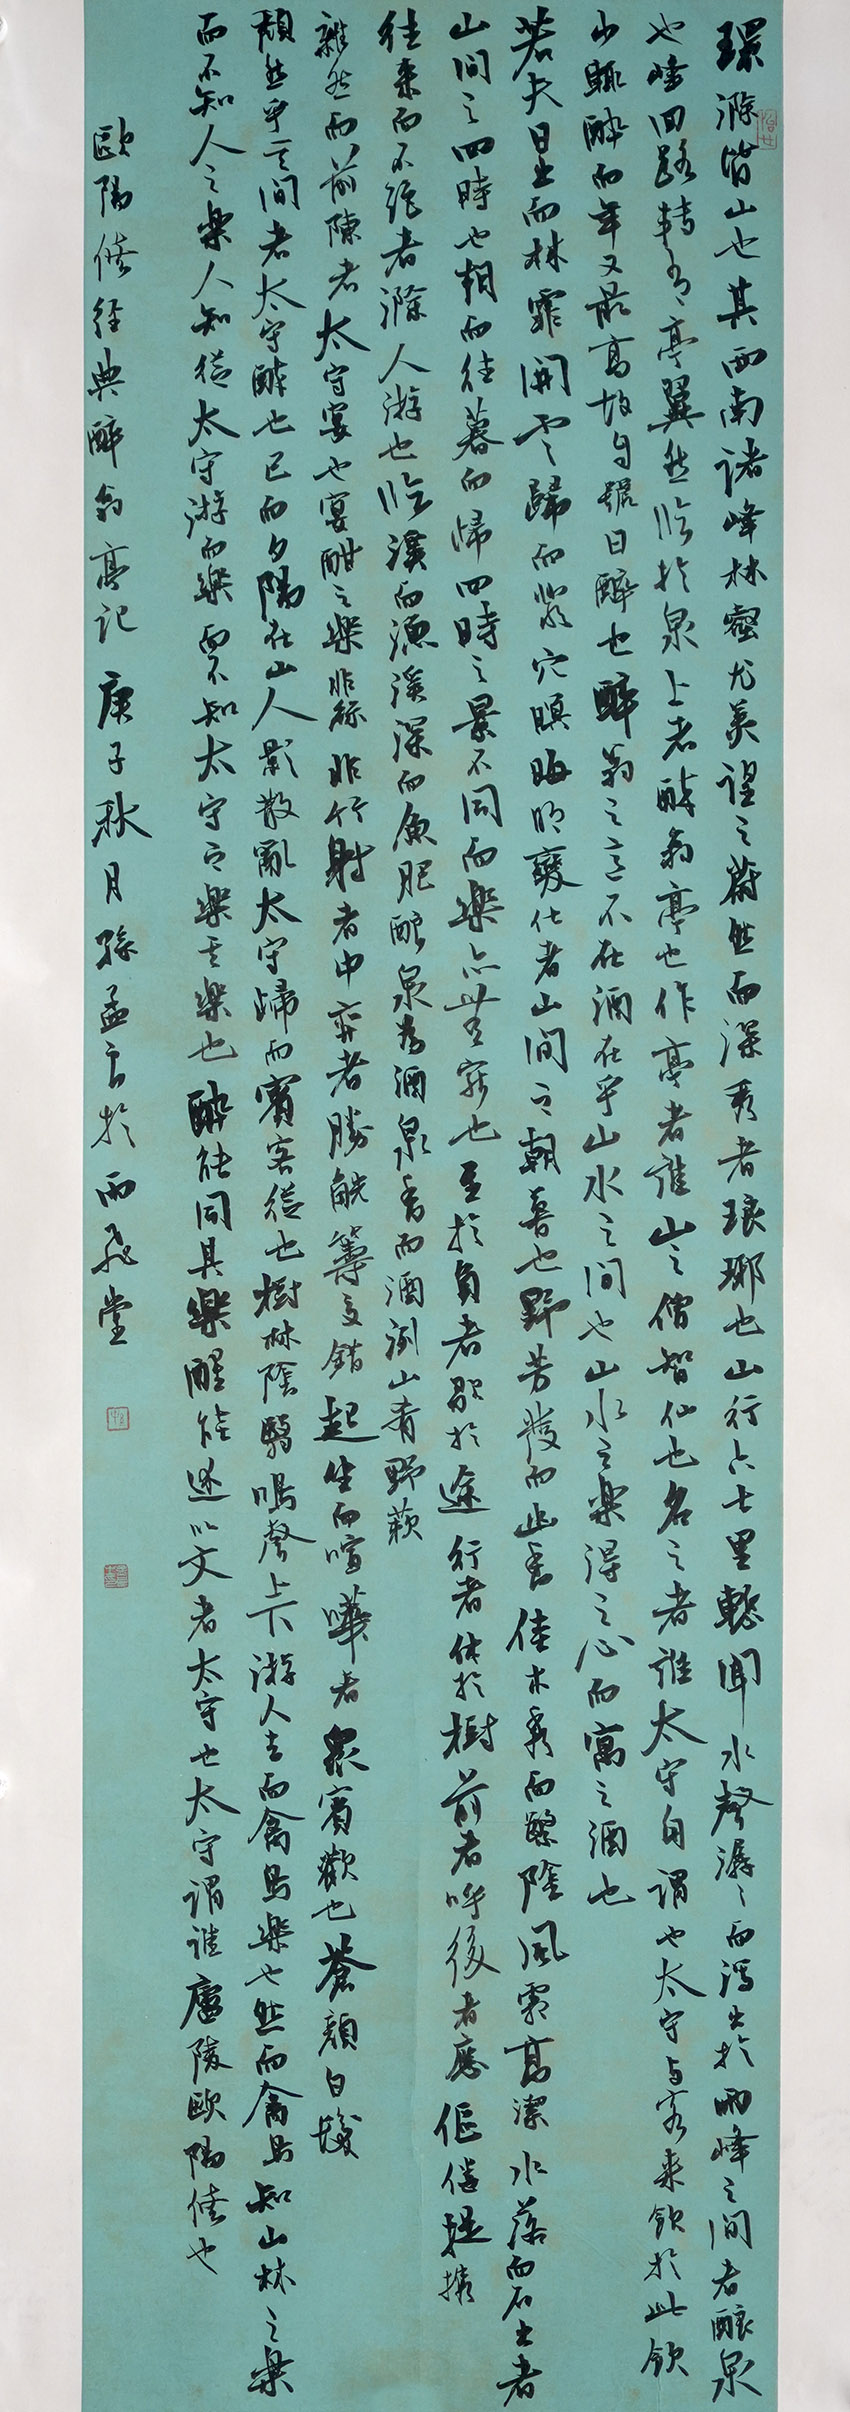 環滁皆山也其西南諸峰林壑尤美望之蔚然而深秀者琅琊也山行六七里漸聞水聲潺〻而瀉出於兩峰之間者釀泉
也峰回路轉有亭翼然臨於泉上者醉翁亭也作亭者誰山之僧智仙也名之者誰太守自謂也太守與客來飲於此飲
少輒醉而年又最高故自號曰醉也醉翁之意不在酒在乎山水之間也山水之樂得之心而寓之酒也
若夫日出而林霏開雲歸而巖穴暝晦明變化者山間之朝暮也野芳發而幽香佳木秀而繁陰風霜高潔水落而石出者
山間之四時也朝而往暮而歸四時之景不同而樂亦無窮也至於負者歌於途行者休於樹前者呼後者應傴僂提攜
往來而不絕者滁人游也臨溪而漁溪深而魚肥釀泉為酒泉香而酒洌山肴野蔌
雜然而前陳者太守宴也宴酣之樂非絲非竹射者中弈者勝觥籌交錯起坐而喧嘩者眾賓歡也蒼顏白髮
頹然乎其間者太守醉也已而夕陽在山人影散亂太守歸而賓客從也樹林陰翳鳴聲上下游人去而禽鳥樂也然而禽鳥知山林之樂
而不知人之樂人知從太守游而樂而不知太守之樂其樂也醉能同其樂醒能述以文者太守也太守謂誰廬陵歐陽修也
歐陽修經典醉翁亭記庚子秋月孫孟言於雨飛堂